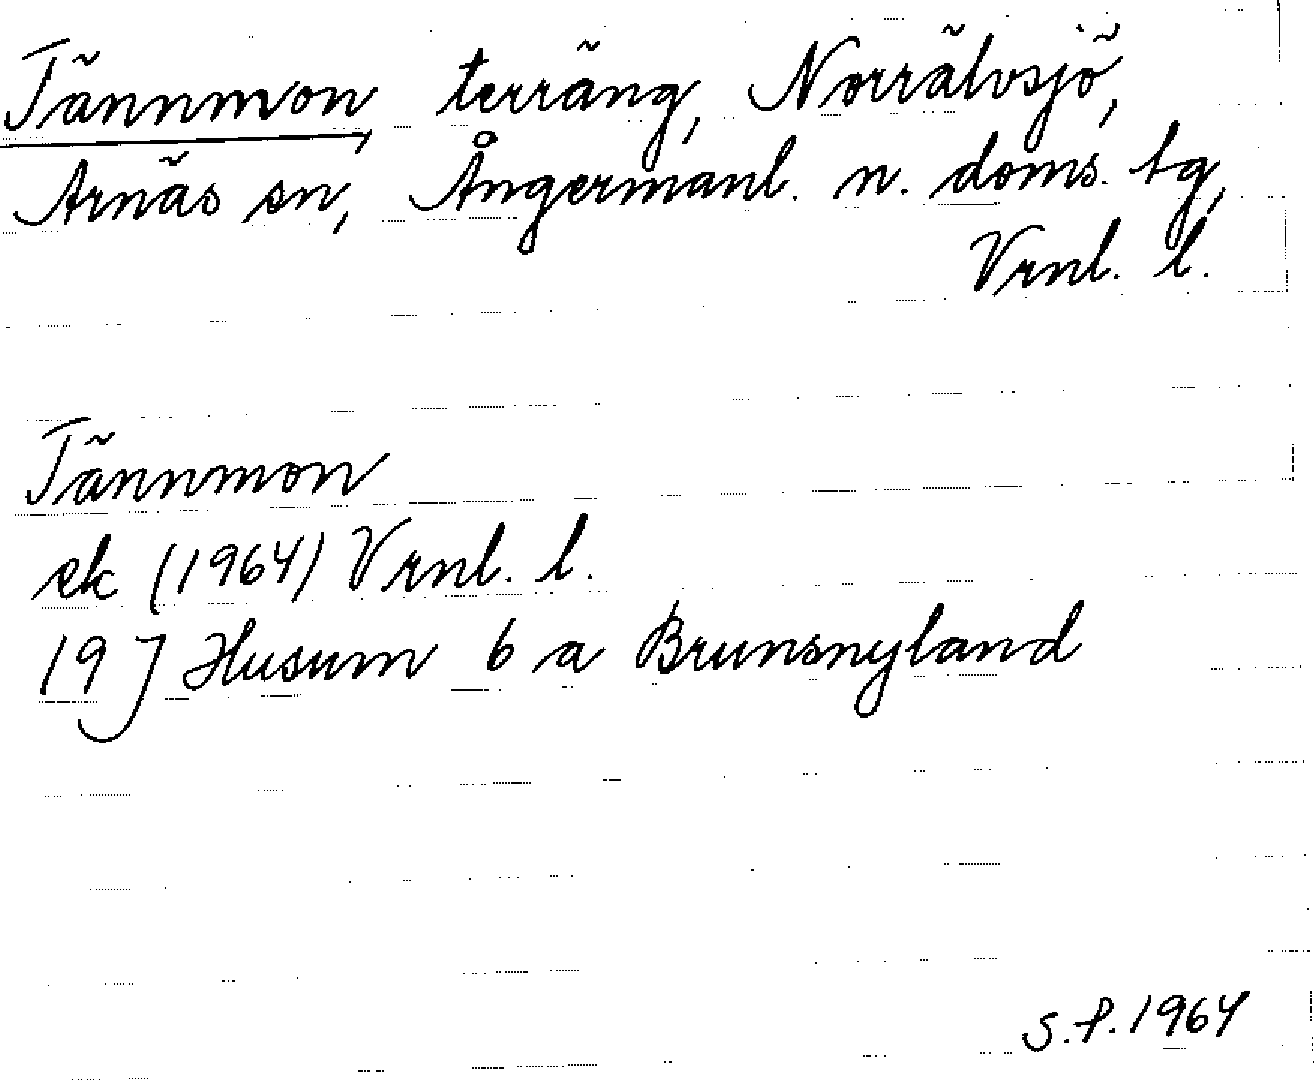 Tännmon, terräng, Norrälvsjö,
Arnäs sn, Ångermanl. n. doms. tg,
Vrnl. l.
Tännmon
ek (1964) Vrnl. l.
19 J Husum 6 a Brunsnyland
S.P. 1964